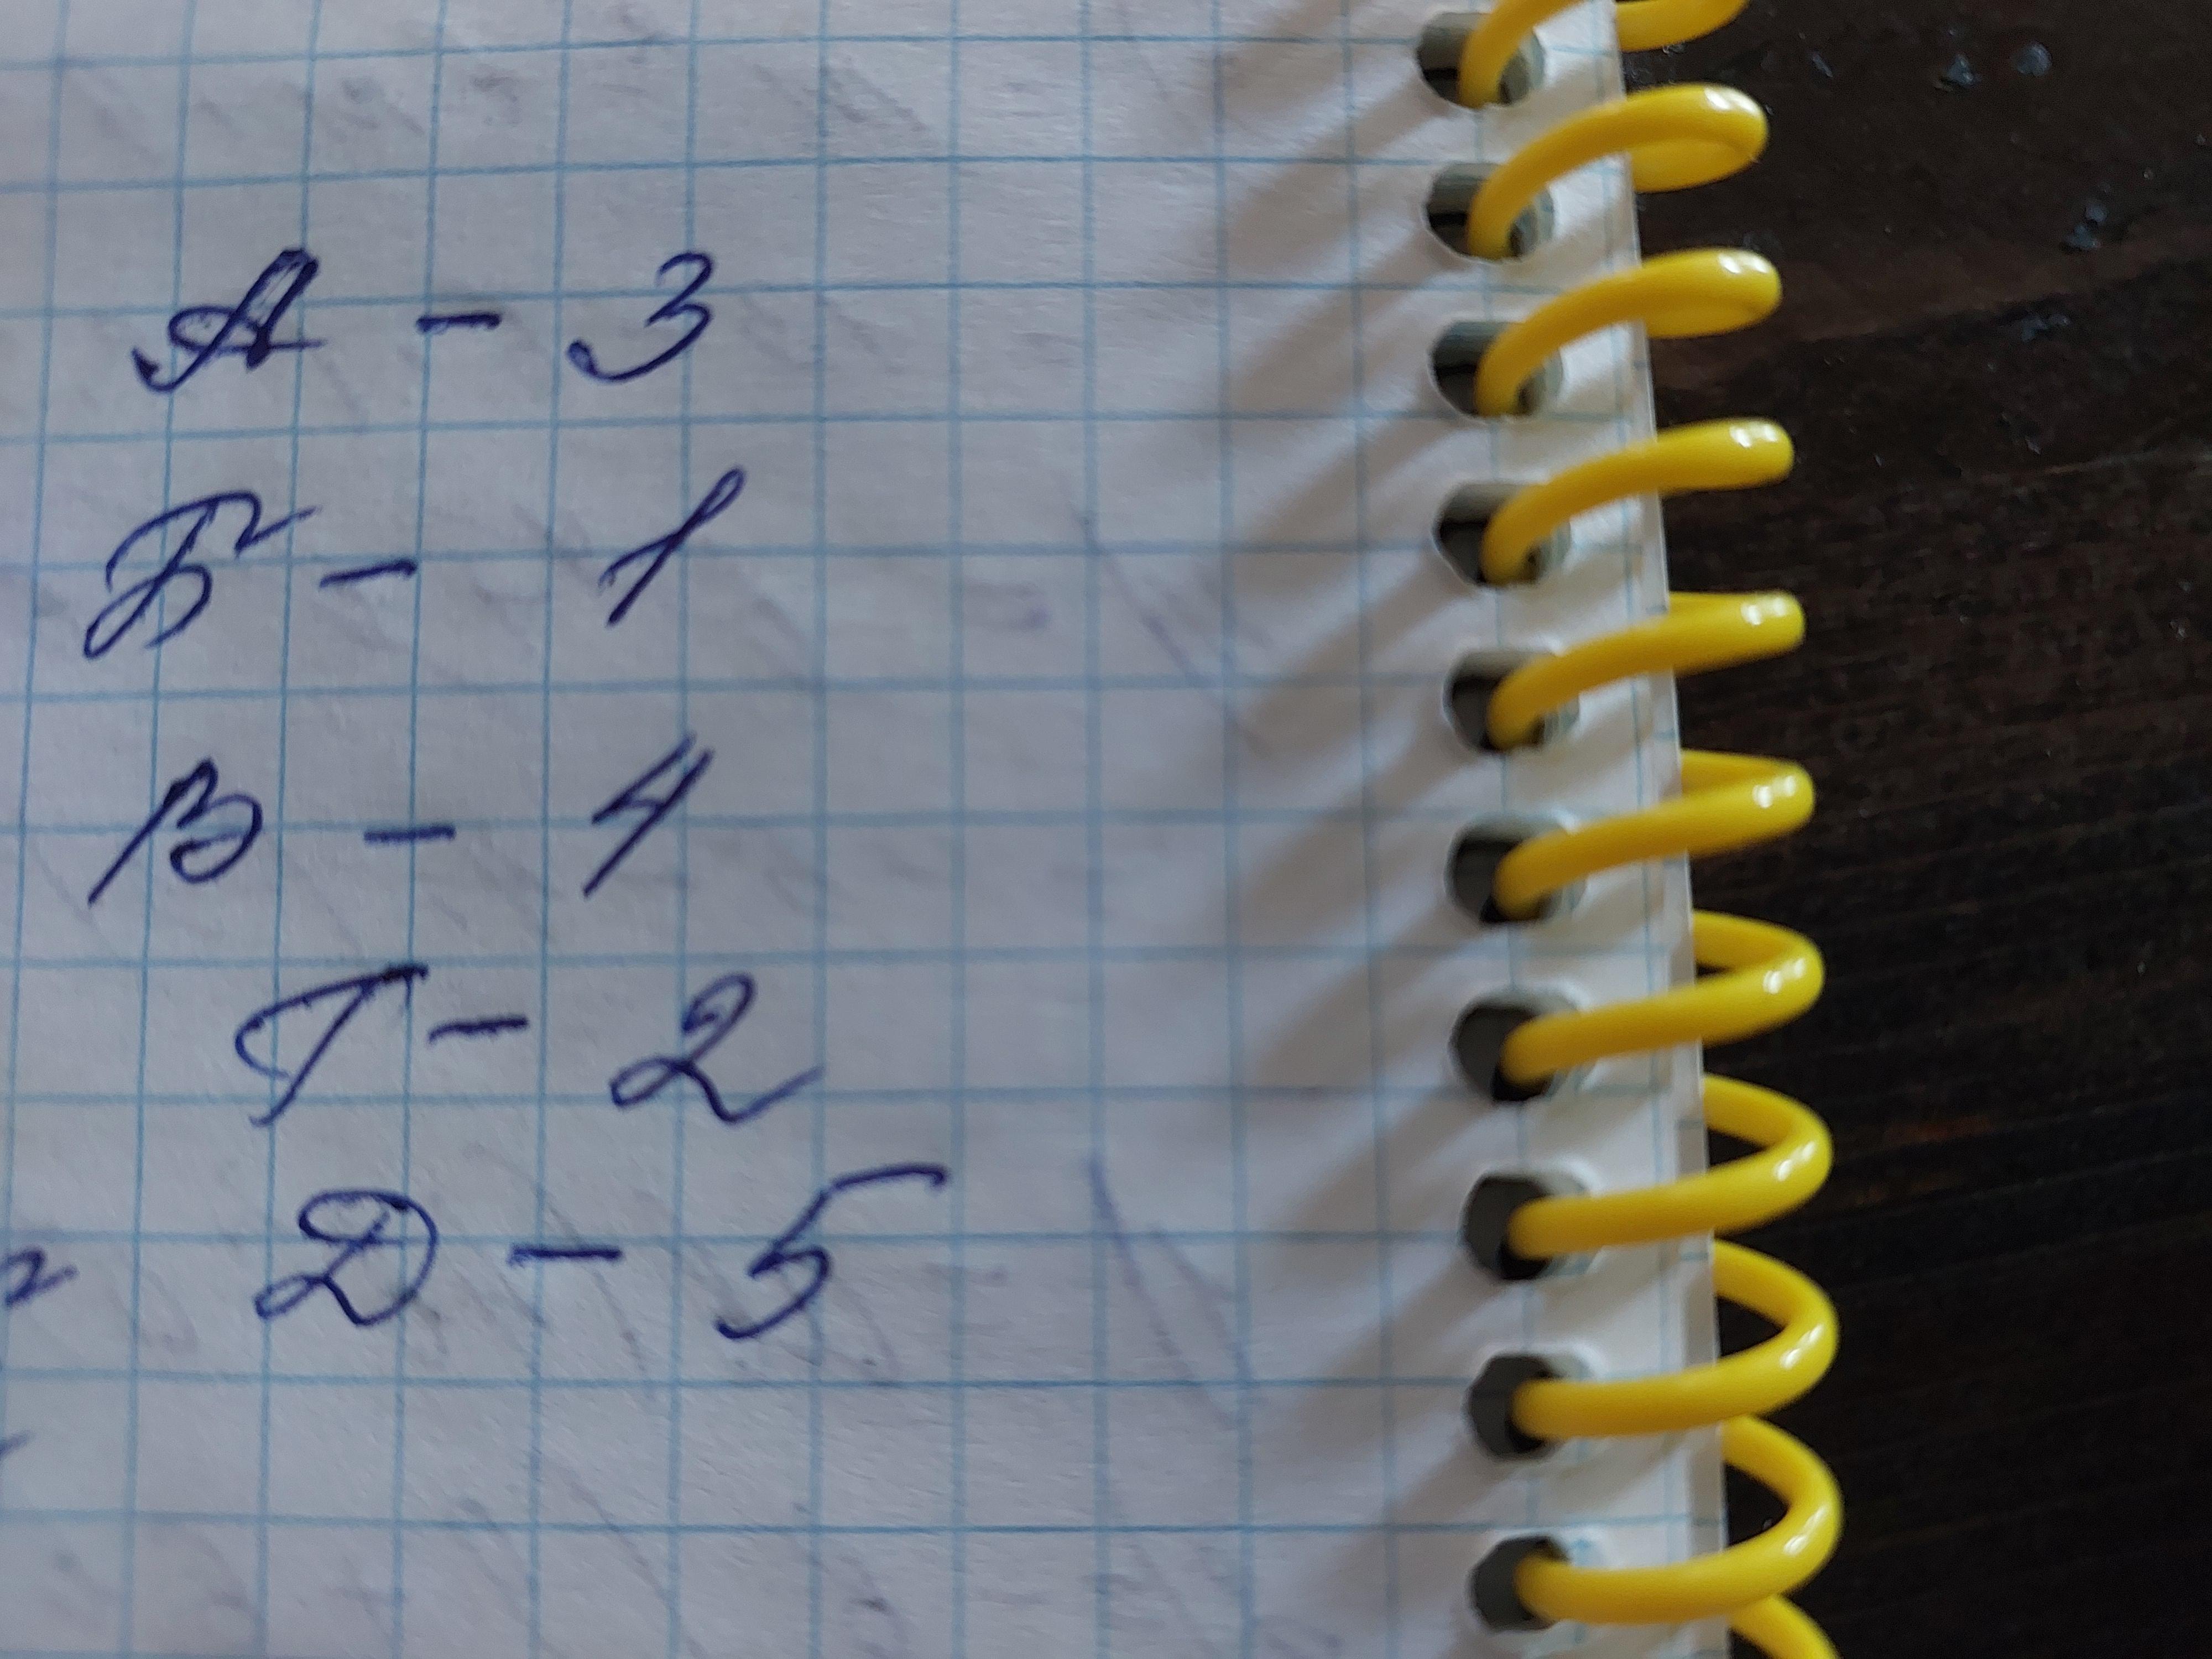 А - 3
Б - 1
В - 4
Г - 2
Д - 5